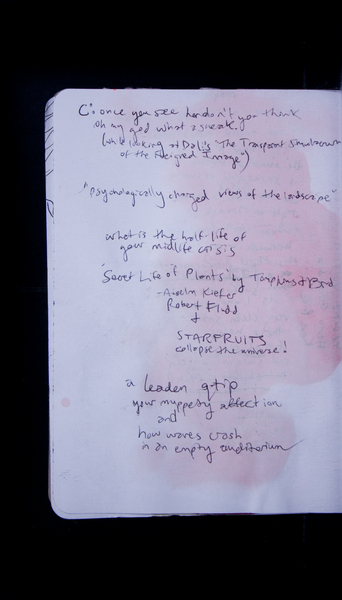 C: once you see her don't you think
oh my god what a sneak.
(while looking at Dali's "The Trasparent Simulacrum
of the Feigned Image")
"psychologically charged views of the landscape"
what is the half life of
your midlife crisis
"Secret Life of Plants" by Tompkins & Bird
- Anselm Kiefer
Robert Fludd
+
STARFRUITS
collapse the universe!
a leaden qtip
your muppetry affection
and
how waves crash
in an empty auditorium